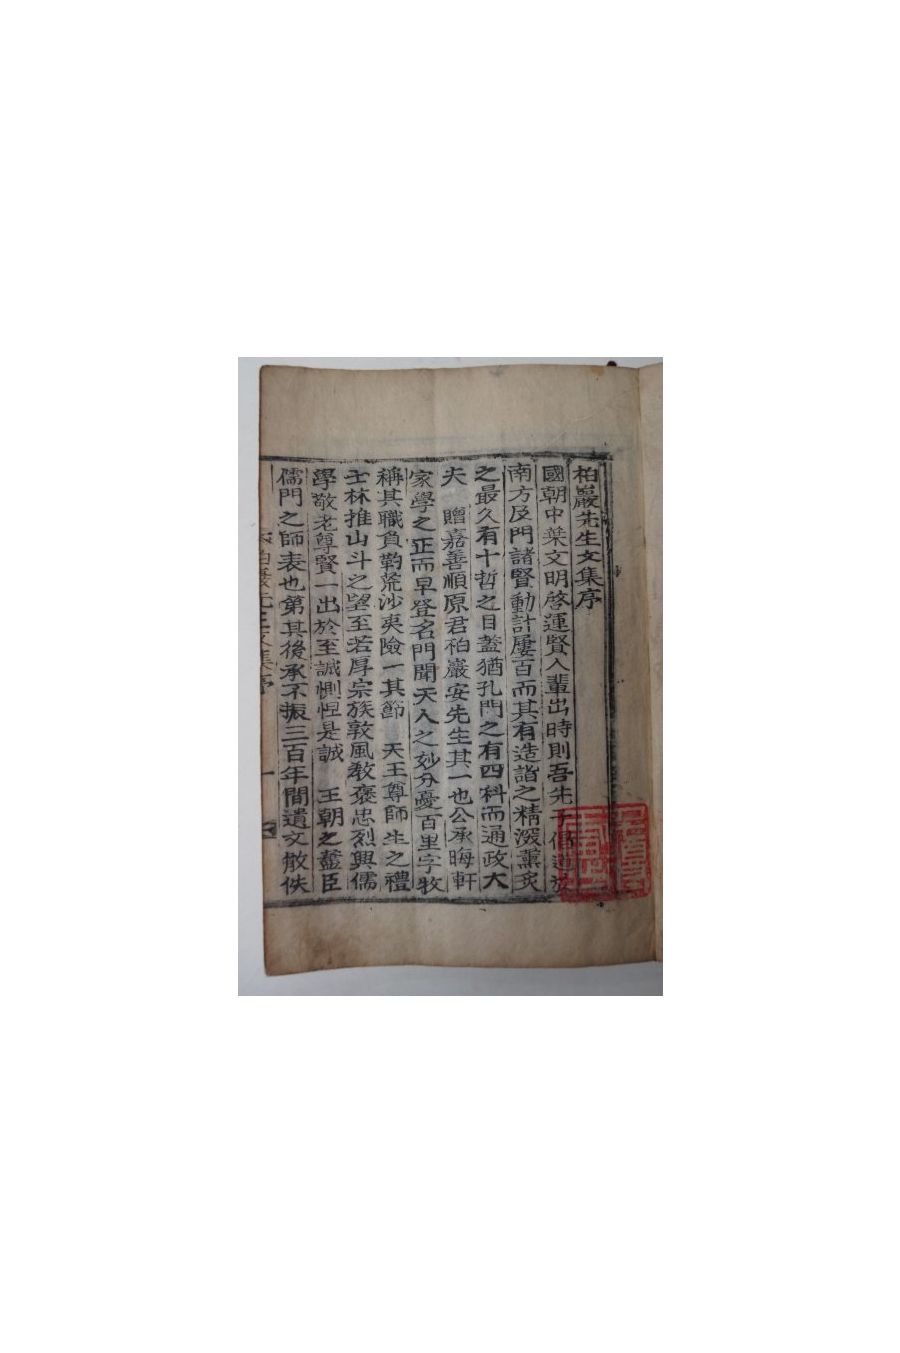 柏巖先生文集序
國朝中葉文明啓運賢人輩出時則吾先子倡道於
南方及門諸賢動計屢百而其有造詣之精深薰炙
之最久有十哲之目蓋猶孔門之有四科而通政大
夫 贈嘉善順原君柏巖安先生其一也公承晦軒
家學之正而早登名門聞天人之妙分憂百里字牧
稱其職負羈荒沙夷險一其節 天王尊師生之禮
士林推山斗之望至若厚宗族敦風教褒忠烈興儒
學敬老尊賢一出於至誠惻怛是誠 王朝之藎臣
儒門之師表也第其後承不振三百年間遺文散佚
柏巖先生文集序 一